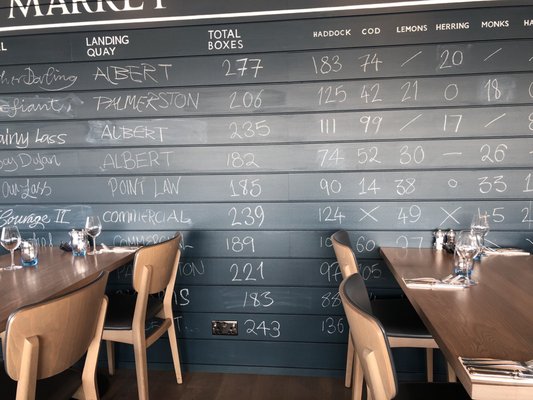 MARKET
LANDING QUAY TOTAL BOXES HADDOCK COD LEMONS HERRING MONKS
Darling ALBERT 277 183 74 / 20 /
Defiant PALMERSTON 206 125 42 21 0 18
Lass ALBERT 235 111 99 / 17 /
Boy Dylan ALBERT 182 74 52 30 — 26
Our-Lass POINT LAW 185 90 14 38 0 33
Courage II COMMERCIAL 239 124 X 49 X 45
COMMERCIAL 189 60 27
221 97
183
243 136